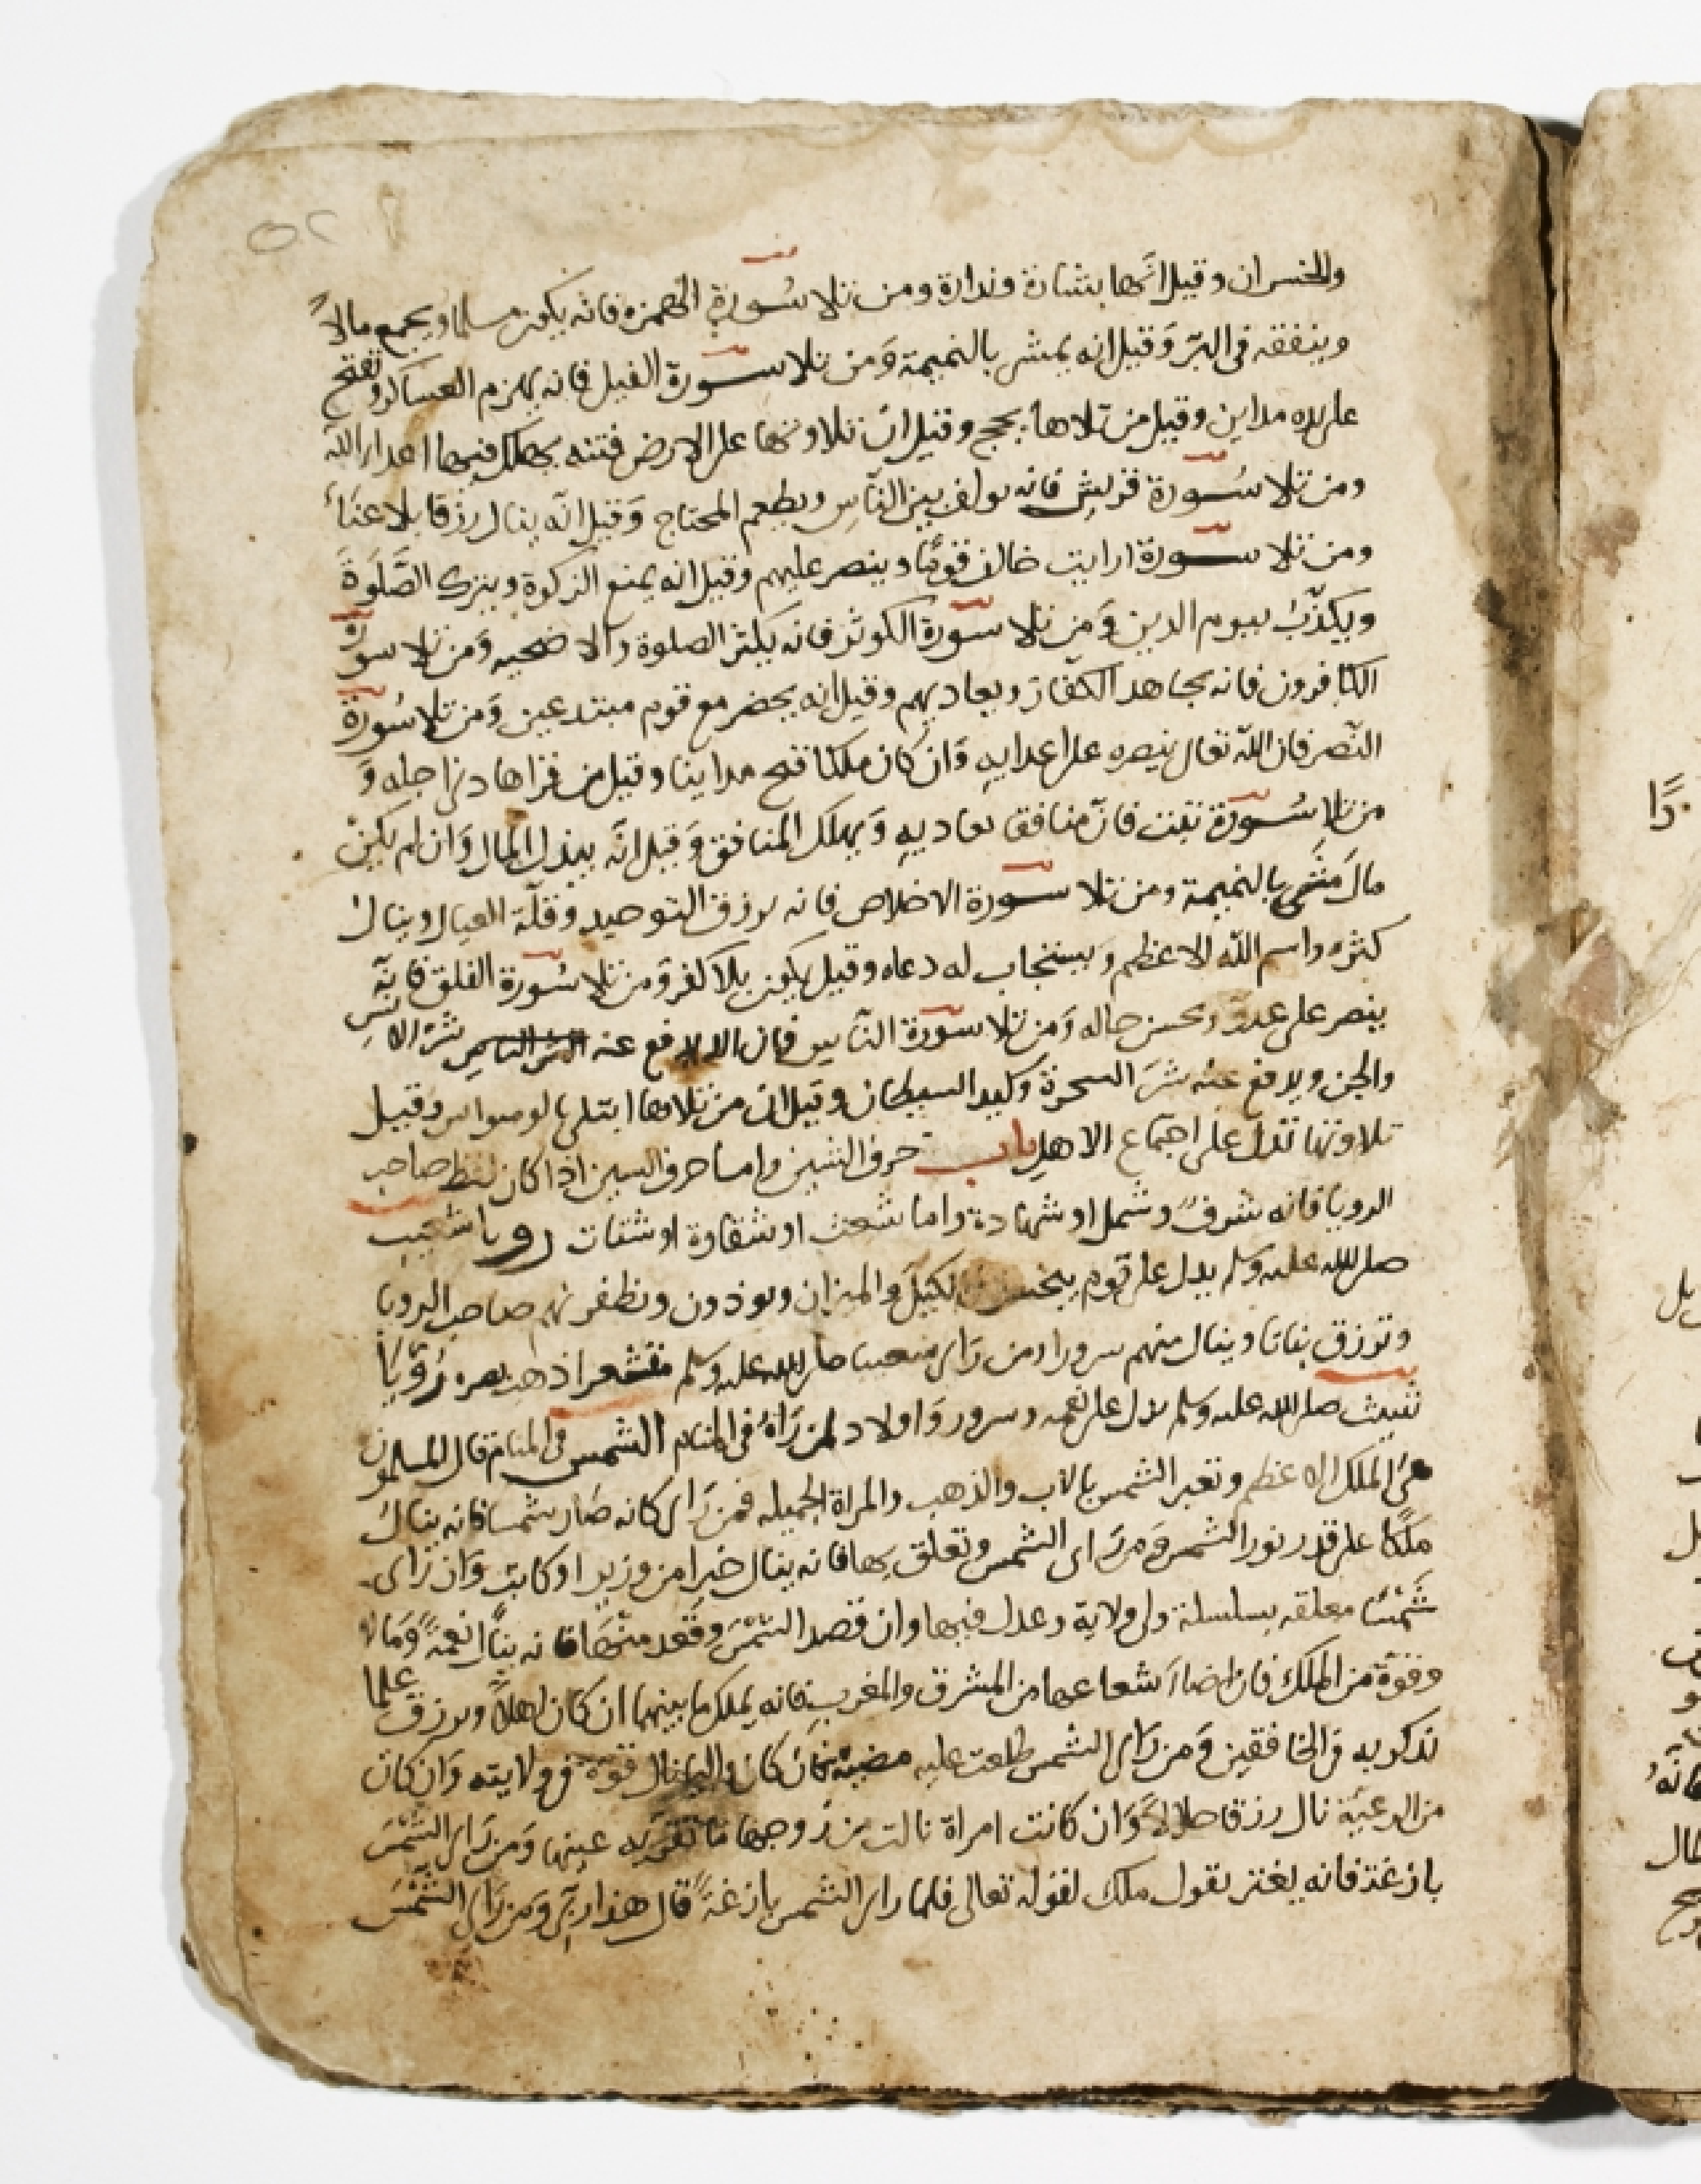 ٥٢
والخسران وقيل انها بشارة ونذارة ومن تلا سورة الهمزه فانه يكون مسلما ويجمع مالاً
وينفقه في البر وقيل انه يمشى بالنميمة ومن تلا سورة الفيل فانه يهزم العساكر وتفتح
على يده مداين وقيل من تلاها يحج وقيل ان تلاوتها على الارض فتنه يهلك فيها اعدا الله
ومن تلا سورة قريش فانه يولف بين الناس ويطعم المحتاج وقيل انه ينال رزقا بلا عناء
ومن تلا سورة ارايت خالف قومًا وينصر عليهم وقيل انه يمنع الزكوة ويترك الصَّلَوةَ
ويكذّبُ بيوم الدين وَمن تلا سورة الكوثر فانه يكثر الصلوة والاضحيه وَمن تلا سورة
الكافرون فانه يجاهد الكفار ويعاديهم وقيل انه يحضر مع قوم مبتدعين وَمن تلا سُورة
النصر فان الله تعالى ينصره على اعدايهِ وَان كان ملكا فتح مداينا وقيل من قراها دنا اجله وَ
من تلا سُورة تبت فان منافقا يعاديهِ وَيهلك المنافق وَقيل انه يبذل المال وَان لم يكن
مالَ مَشَى بالنميمة ومن تلا سورة الاخلاص فانه يرزق التوحيد وقلّة العيال وينال
كثره واسم الله الاعظم ويستجاب له دعاه وقيل يكون بلا كفر وَمن تلا سُورة الفلق فانه
ينصر على عدو ويحسن حاله وَمن تلا سورة الناس فان الله يدفع عنه شر الانس
والجن ويدفع عنه شرَ السحرة وكيد السيطان وقيل ان من تلاها ابتلى بالوسواس وقيل
تلاوتها تدل على اجتماع الاهل باب حرف الشين واما حرف السين اذا كان لفظ صاحب
الرويا فانه شرفٌ وشمل او شهادة واما شعث او شقاوة او شتات رويا شعيب
صلى الله عليه وسلم يدل على قوم يبخسون الكيل والميزان ويوذون ويظفر بهم صاحب الرويا
وترزق بناتا وينال منهم سرورا ومن رَاى شعيبا صلى الله عليه وسلم مقشعر اذهب بصره رُؤْيَا
شيث صلى الله عليه وسلم يدل على نعمه وسرور وَاولاد لمن رَآهُ في المنام الشمس في المنام قال المسلمون
هى الملك الاعظم وتعبر الشمس بالاب والذهب والمراة الجميله فمن رَاى كانه صَار شمسا فانه ينال
ملكًا على قدر نور الشمس وَمن رَاى الشمس وتعلق بها فانه ينال خيرا من وزير او كاتب وَان رَاى
شَمْسًا معلقه بسلسلة ولى ولاية وعدل فيها وان قصد الشمْسَ وقعد منْهَا فانه ينال نعمةً وَمالا
وقوّة من الملك فان اضاا شعاعها من المشرق والمغرب فانه يملك ما بينهما ان كان اهلاً ويرزق علما
يذكر به في الخافقين وَمن رَاى الشمس طلعت عليه مضيئة فان كان واليا نال قوة في ولايته وَان كان
من الرعيّة نال رزقا حلالاً وَان كانت امراة نالت من زوجها ما تقرّ به عينها وَمن رَاى الشَّمْسَ
بازغة فانه يغتر بقول ملك لقوله تعالى فلما راى الشمس بازغةً قال هذا ربي وَمن رَاى الشَّمْسَ